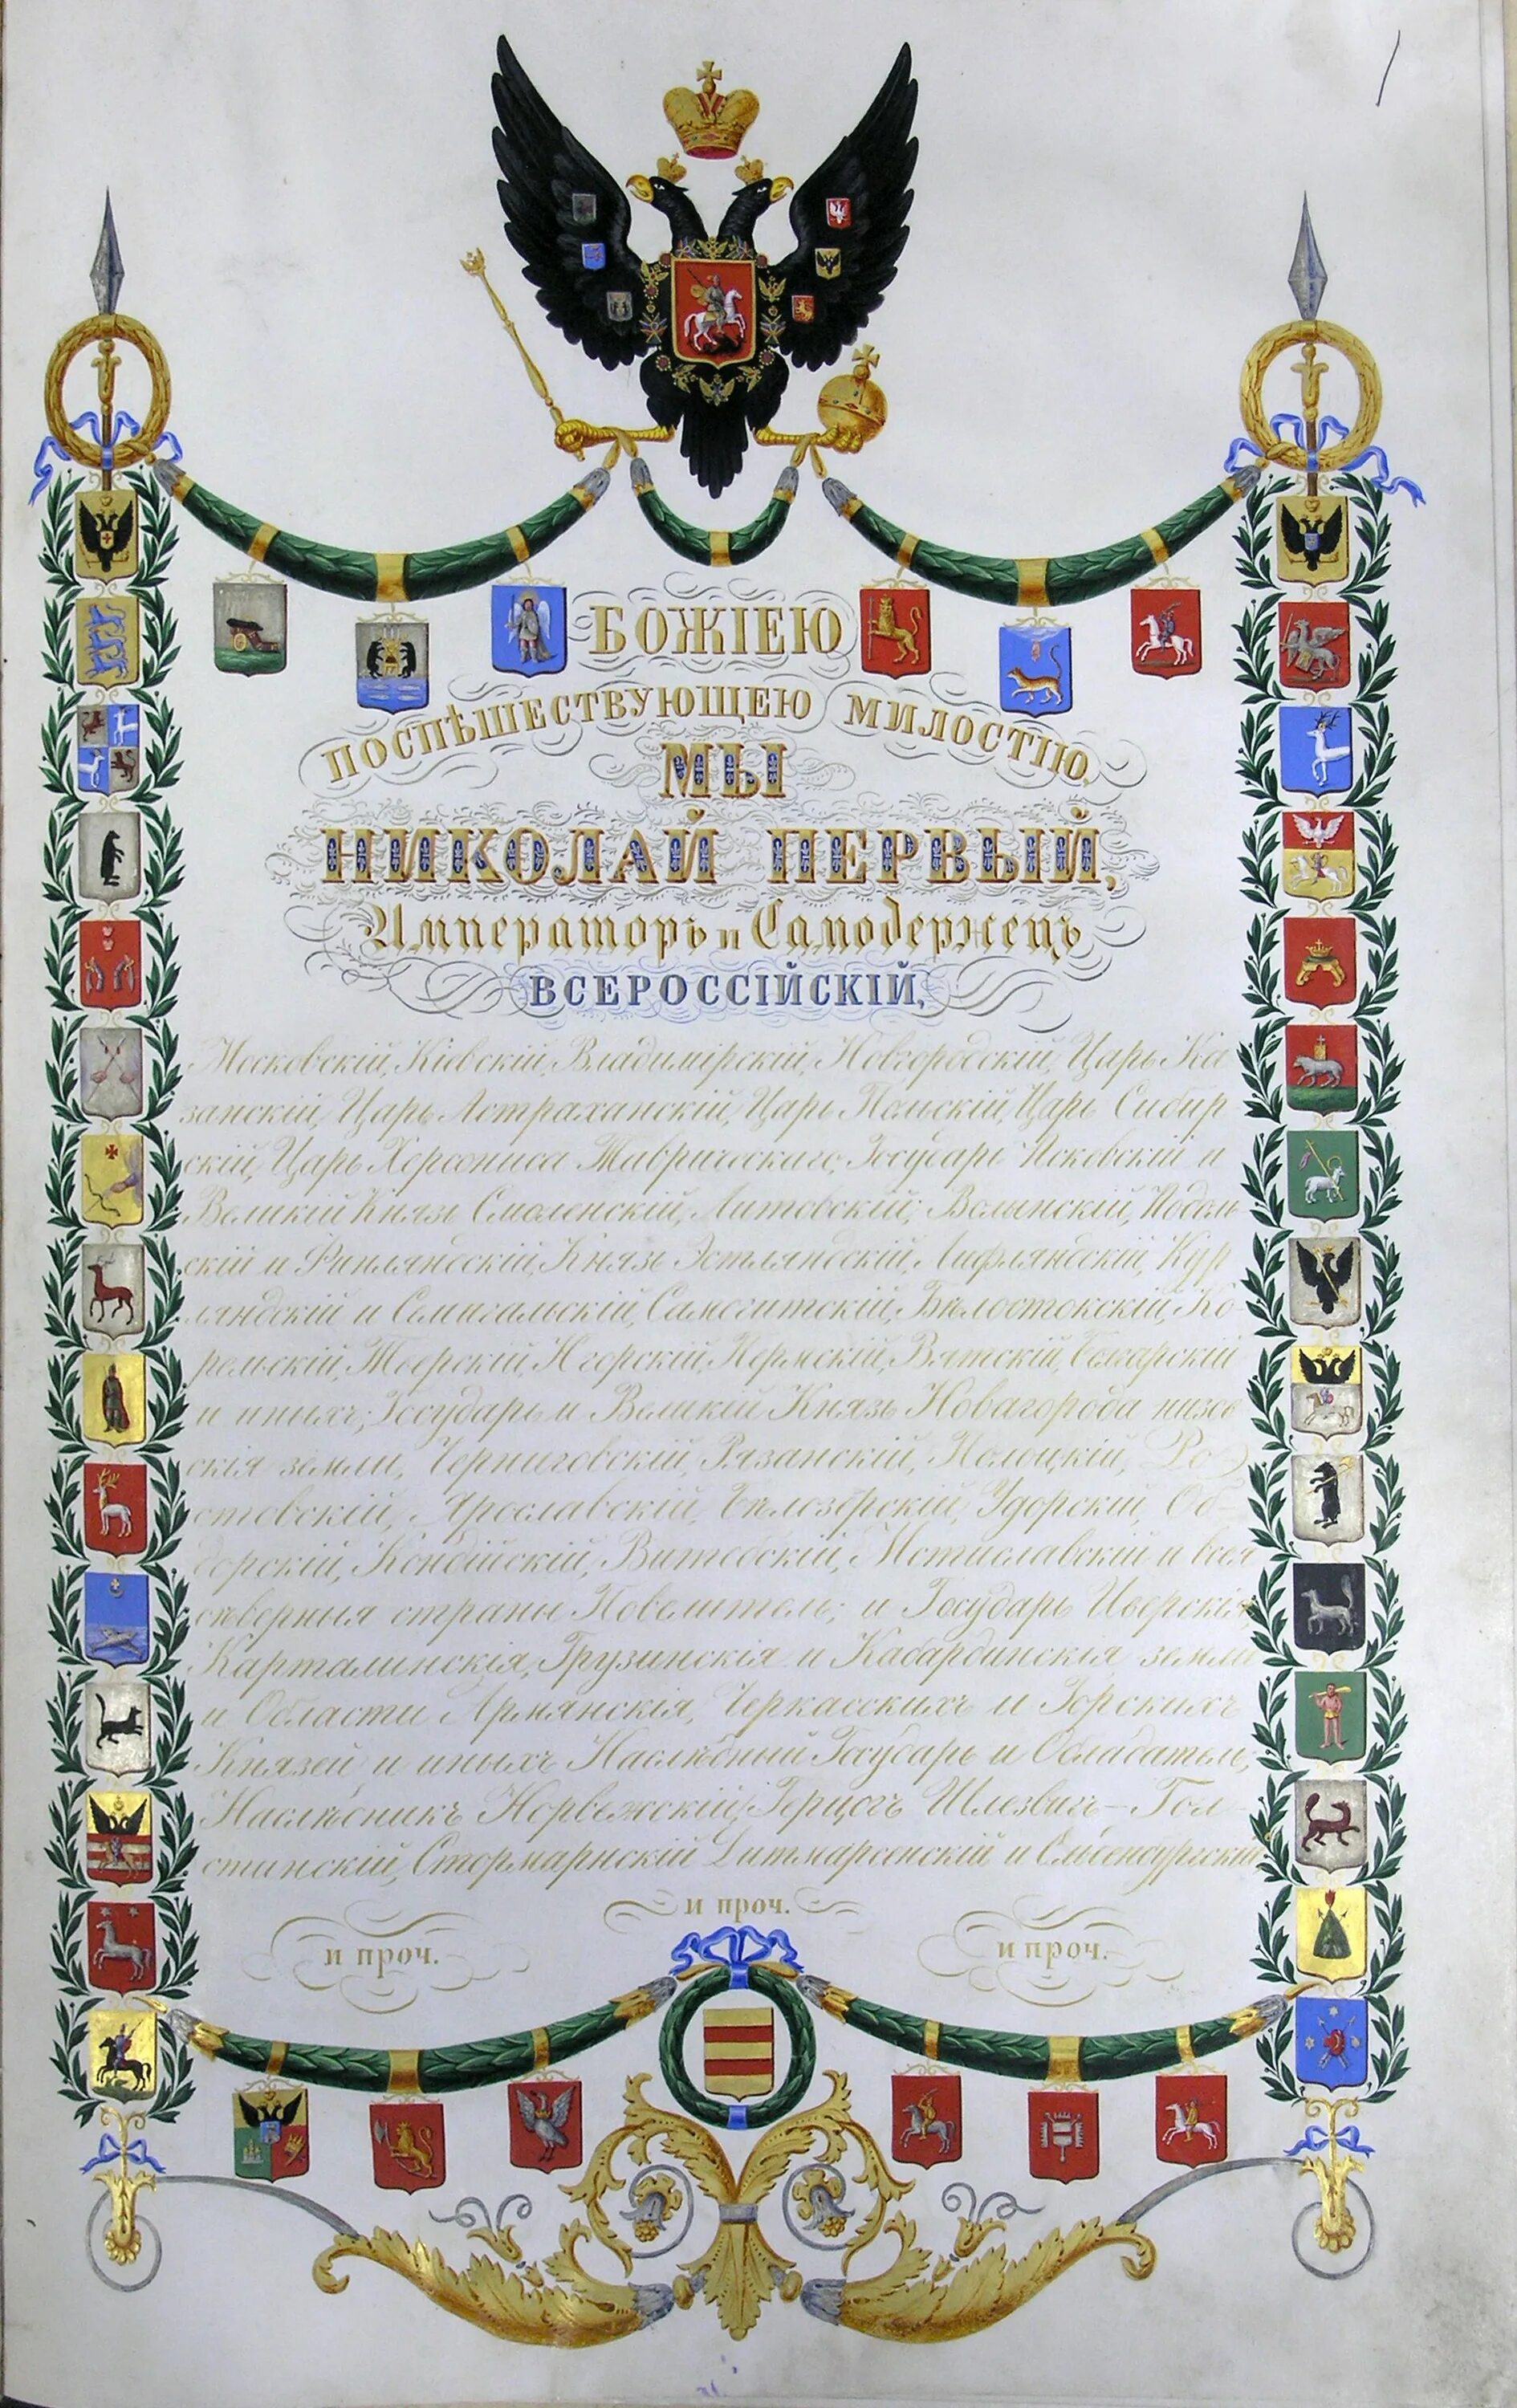 БОЖІЕЮ
ПОСПѢШЕСТВУЮЩЕЮ МИЛОСТІЮ,
МЫ
НИКОЛАЙ ПЕРВЫЙ,
Императоръ и Самодержецъ
ВСЕРОССІЙСКІЙ,
Московскій, Кіевскій, Владимірскій, Новгородскій, Царь Ка
занскій, Царь Астраханскій, Царь Польскій, Царь Сибир
скій, Царь Херсониса Таврическаго, Государь Псковскій и
Великій Князь Смоленскій, Литовскій, Волынскій, Подоль
скій и Финляндскій, Князь Эстляндскій, Лифляндскій, Кур
ляндскій и Семигальскій, Самогитскій, Бѣлостокскій, Ко-
рельскій, Тверскій, Югорскій, Пермскій, Вятскій, Болгарскій
и иныхъ; Государь и Великій Князь Новагорода низов
скія земли, Черниговскій, Рязанскій, Полоцкій, Ро-
стовскій, Ярославскій, Бѣлозерскій, Удорскій, Об-
дорскій, Кондійскій, Витебскій, Мстиславскій и всея
сѣверныя страны Повелитель; и Государь Иверскія,
Карталинскія, Грузинскія и Кабардинскія земли
и Области Армянскія, Черкасскихъ и Горскихъ
Князей и иныхъ Наслѣдный Государь и Обладатель,
Наслѣдникъ Норвежскій, Герцогъ Шлезвигъ-Гол
стинскій, Стормарнскій Дитмарсенскій и Ольденбургскій
и проч.
и проч. и проч.